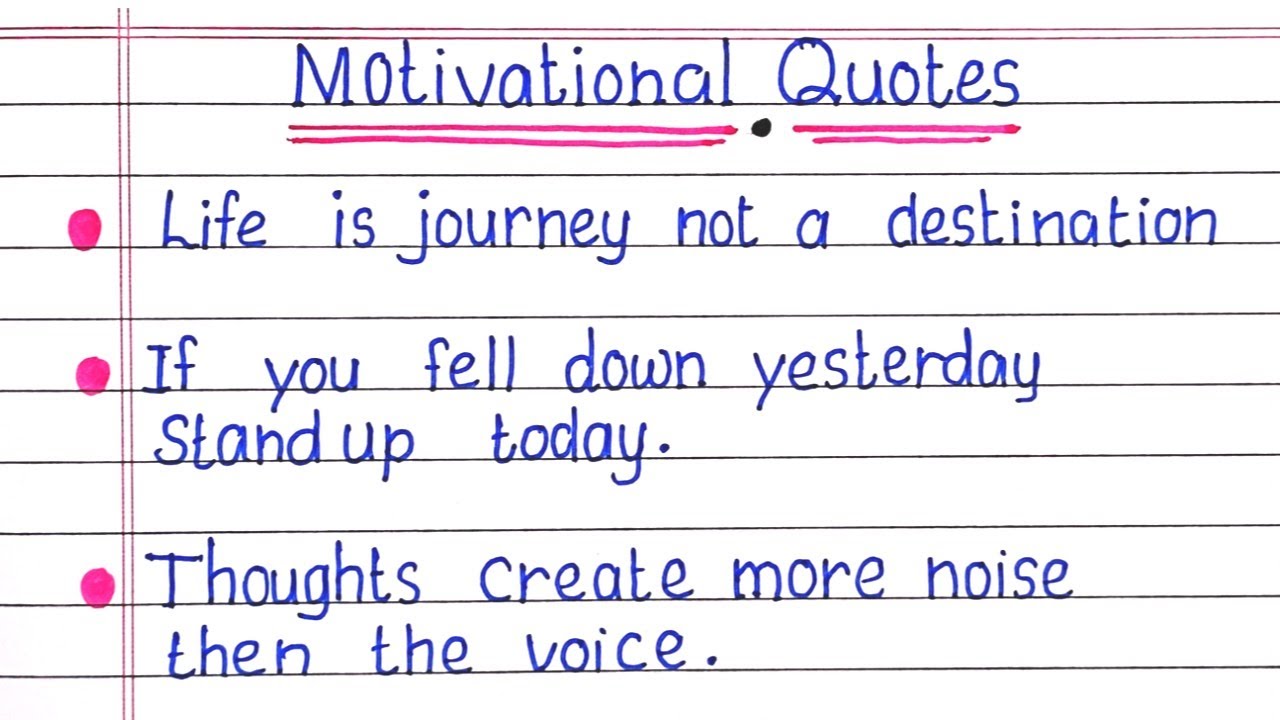 Motivational Quotes
Life is journey not a destination
If you fell down yesterday
Stand up today.
Thoughts create more noise
then the voice.